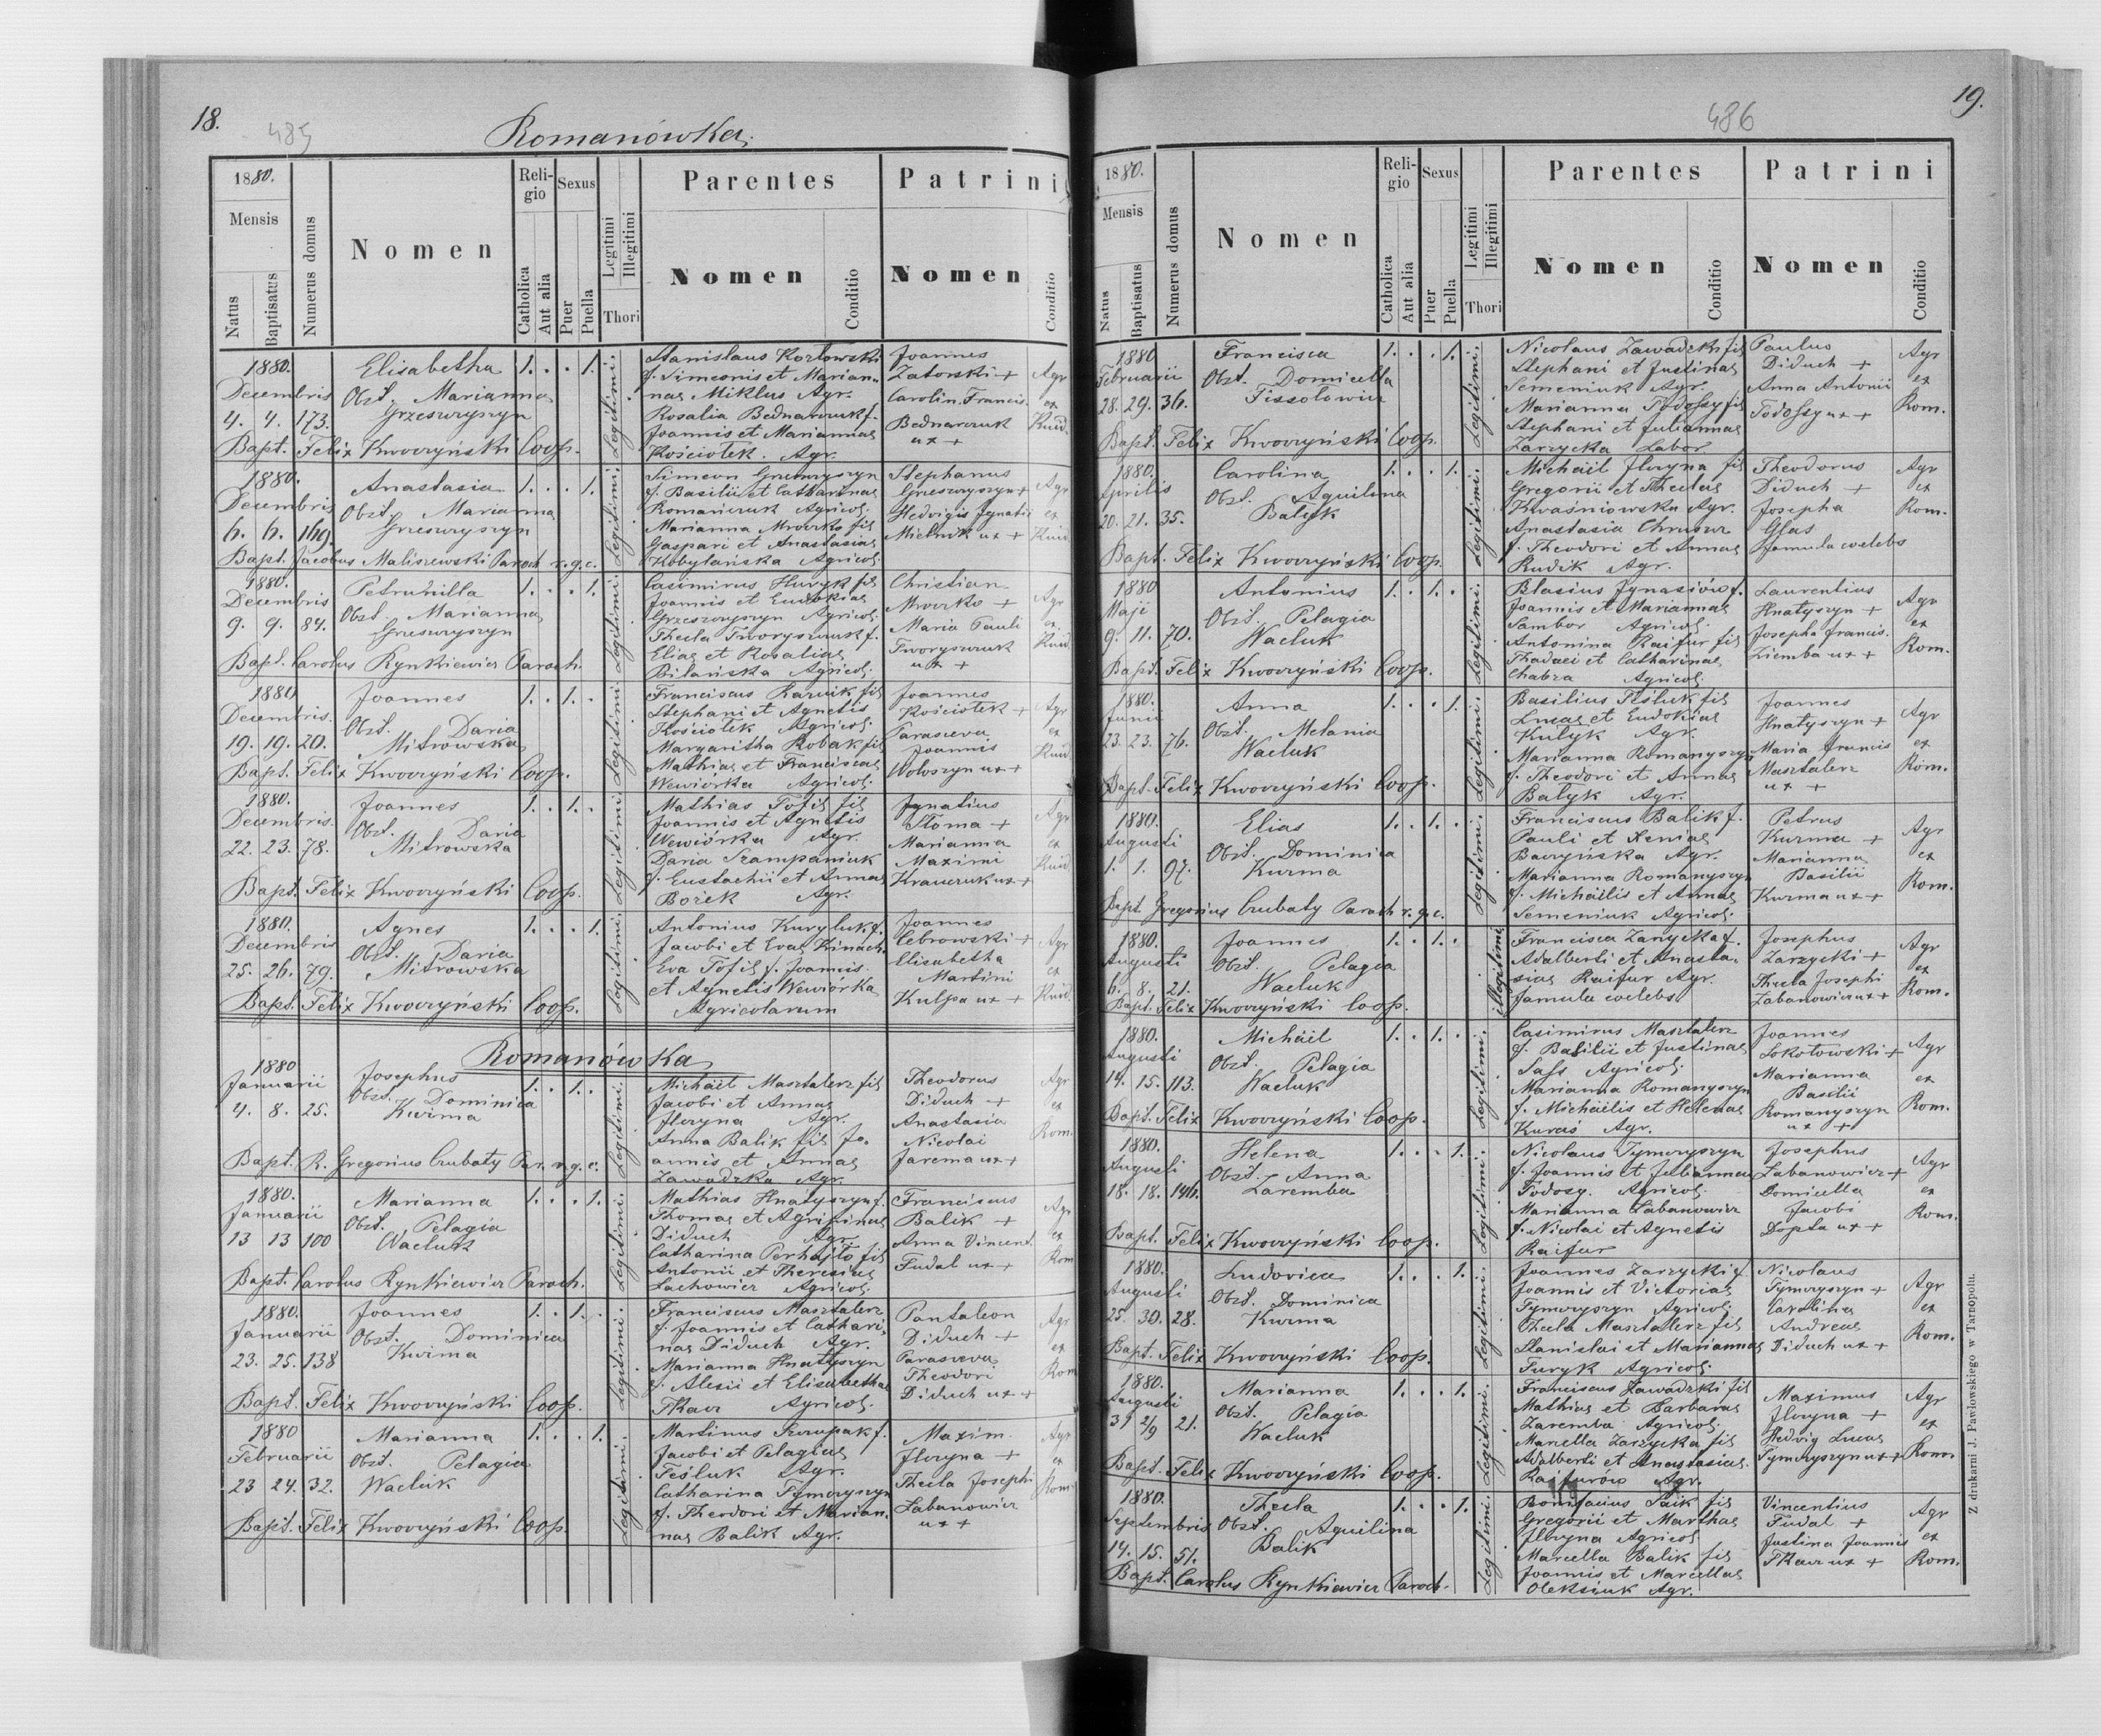 18.
485
Romanówka
1880.
Mensis
Natus
Baptisatus
Numerus domus
Nomen
Religio
Catholica
Aut alia
Sexus
Puer
Puella
Legitimi
Illegitimi
Thori
Parentes
Nomen
Conditio
Patrini
Nomen
Conditio
1880.
Decembris
4. 4. 173.
Elisabetha
Obst. Marianna
Grzeszczyszyn
1. . . 1.
Legitimi.
Stanislaus Kozłowski
f. Simeonis et Marian-
nae Miklus Agr.
Rosalia Bednarczuk f.
Joannis et Mariannae
Kościołek. Agr.
Joannes
Zatorski +
Carolin. Francis.
Bednarczuk
ux +
Agr
ex
Bapt. Felix Kwoczyński Coop.
1880.
Decembris
6. 6. 169.
Anastasia
Obst. Marianna
1. . . 1.
Legitimi.
f. Basilii et Catharinae
Romańczuk Agricol.
Marianna Mroczko fil
Gaspari et Anastasiae
Kobylańska Agricol.
Stephanus
Hedvigis Ignatii
Mielnik ux +
Agr
ex
Bapt. Jacobus Maliszewski Paroch r. g. c.
1880.
Decembris
9. 9. 84.
Petrunilla
Obst Marianna
1. . . 1.
Legitimi.
Casimirus Huryk fil
Joannis et Eudokiae
Agricol.
Elias et Rosaliae
Bilańska Agricol.
Christian
Mroczko +
Maria Pauli
ux +
Agr
ex
Bapt. Carolus Rynkiewicz Paroch.
1880
Decembris.
19. 19. 20.
Joannes
Obst. Daria
Mitrowska
1. . 1. .
Legitimi
Stephani et Agnetis
Kościołek Agricol.
Margaritha Robak fil
Mathiae et Franciscae
Wewiórka Agricol.
Joannes
Kościołek +
Parasceva
Joannis
Wołoszyn ux +
Agr
ex
Bapt. Felix Kwoczyński Coop.
1880.
Decembris.
22. 23. 78.
Joannes
Obst. Daria
Mitrowska
1. . 1. .
Legitimi.
Mathias Tofil fil
Joannis et Agnetis
Wewiórka Agr.
Daria Szampaniuk
f. Eustachii et Annae
Borek Agr.
Ignatius
Stoma +
Marianna
Maximi
Krawczuk ux +
Agr
ex
Bapt. Felix Kwoczyński Coop.
1880.
Decembris
25. 26. 79.
Agnes
Obst. Daria
Mitrowska
1. . . 1.
Legitimi.
Antonius Kuryluk f.
Jacobi et Evae Kinach
Eva Tofil f. Joannis
et Agnetis Wewiórka
Agricolarum
Joannes
Cebrowski +
Elisabetha
Martini
Kulpa ux +
Agr
ex
Bapt. Felix Kwoczyński Coop.
Romanówka
1880
Januarii
4. 8. 25.
Josephus
Obst. Dominica
1. . 1. .
Legitimi.
Michäel Masztalerz fil
Jacobi et Annae
Horyna Agr.
Anna Balik fil Jo-
annis et Annae
Zawadzka Agr.
Theodorus
Diduch +
Anastasia
Nicolai
Jarema ux +
Agr
ex
Rom.
Bapt. R. Gregorius Czubaty Par. r. g. c.
1880.
Januarii
13 13 100
Marianna
Obst. Pelagia
Wacluk
1. . . 1.
Legitimi.
Mathias Hnatyszyn f.
Thomae et Agripinae
Diduch Agr.
Catharina Perhajło fil
Antonii et Theresiae
Lachowicz Agricol.
Franciscus
Balik +
Anna Vincent.
Fudal ux +
Agr
ex
Rom
Bapt. Carolus Rynkiewicz Paroch.
1880.
Januarii
23. 25. 138
Joannes
Obst. Dominica
1. . 1. .
Legitimi.
Franciscus Masztalerz
f. Joannis et Cathari-
nae Diduch Agr.
Marianna Hnatyszyn
f. Alexii et Elisabethae
Tkacz Agricol.
Pantaleon
Diduch +
Parasceva
Theodori
Diduch ux +
Agr
ex
Rom
Bapt. Felix Kwoczyński Coop.
1880
Februarii
23 24. 32.
Marianna
Obst. Pelagia
Wacluk
1. . . 1.
Legitimi.
Jacobi et Pelagiae
Teśluk Agr.
Catharina Tymczyszyn
f. Theodori et Marian-
nae Balik Agr.
Maxim.
Horyna +
Thecla Josephi
Łabanowicz
ux +
Agr
ex
Rom
Bapt. Felix Kwoczyński Coop.
19.
486
1880.
Mensis
Natus
Baptisatus
Numerus domus
Nomen
Religio
Catholica
Aut alia
Sexus
Puer
Puella
Legitimi
Illegitimi
Thori
Parentes
Nomen
Conditio
Patrini
Nomen
Conditio
1880
Februarii
28. 29. 36.
Francisca
Obst. Domicella
1. . . 1.
Legitimi.
Nicolaus Zawadzki fil
Stephani et Justinae
Semeniuk Agr.
Marianna Todossy fil
Stephani et Juliannae
Zarzycka Labor.
Paulus
Diduch +
Anna Antonii
Todossy ux +
Agr
ex
Rom.
Bapt. Felix Kwoczyński Coop.
1880.
Aprilis
20. 21. 35.
Carolina
Obst. Aquilina
Balyk
1. . . 1.
Legitimi.
Michäel Horyna fil
Gregorii et Theclae
Kwaśniowska Agr.
f. Theodori et Annae
Rudik Agr.
Theodorus
Diduch +
Josepha
Głas
famula coelebs
Agr
ex
Rom.
Bapt. Felix Kwoczyński Coop.
1880
Maji
9. 11. 70.
Antonius
Obst. Pelagia
Wacluk
1. . 1. .
Legitimi.
Blasius Ignasiów f.
Joannis et Mariannae
Sambor Agricol.
Antonina Raifur fil
Thadaei et Catharinae
Chabza Agricol.
Laurentius
Hnatyszyn +
Josepha Francis.
Ziemba ux +
Agr
ex
Rom.
Bapt. Felix Kwoczyński Coop.
1880.
Junii
23. 23. 76.
Anna
Obst. Melania
Wacluk
1. . . 1.
Legitimi.
Basilius Teśluk fil
Lucae et Eudokiae
Kulyk Agr.
Marianna Romanyszyn
f. Theodori et Annae
Balyk Agr.
Joannes
Hnatyszyn +
Maria Francis
Masztalerz
ux +
Agr
ex
Rom.
Bapt. Felix Kwoczyński Coop.
1880.
Augusti
1. 1. 97.
Elias
Obst. Dominica
Kuzma
1. . 1. .
Legitimi.
Franciscus Balik f.
Pauli et Xeniae
Baczyńska Agr.
Marianna Romanyszyn
f. Michäelis et Annae
Semeniuk Agricol.
Petrus
Kuzma +
Marianna
Basilii
Kuzma ux +
Agr
ex
Rom.
Bapt. Gregorius Czubaty Paroch r. g. c.
1880.
Augusti
6. 8. 21.
Joannes
Obst. Pelagia
Wacluk
1. . 1. .
illegitimi
Francisca Zarzycka f.
Adalberti et Anasta-
siae Raifur Agr.
famula coelebs
Josephus
Zarzycki +
Thecla Josephi
Łabanowicz ux +
Agr
ex
Rom.
Bapt. Felix Kwoczyński Coop.
1880.
Augusti
14. 15. 113.
Michäel
Obst. Pelagia
Wacluk
1. . 1. .
Legitimi.
Casimirus Masztalerz
f. Basilii et Justinae
Sass Agricol.
Marianna Romanyszyn
f. Michäelis et Helenae
Kuraś Agr.
Joannes
Sokołowski +
Marianna
Basilii
Romanyszyn
ux +
Agr
ex
Rom.
Bapt. Felix Kwoczyński Coop.
1880.
Augusti
18. 18. 146.
Helena
Obst. Anna
Zaremba
1. . . 1.
Legitimi.
Nicolaus Tymczyszyn
f. Joannis et Juliannae
Todosy. Agricol.
Marianna Łabanowicz
f. Nicolai et Agnetis
Raifur
Josephus
Łabanowicz +
Domicella
Jacobi
Dopta ux +
Agr
ex
Rom.
Bapt. Felix Kwoczyński Coop.
1880.
Augusti
25. 30. 28.
Ludovica
Obst. Dominica
Kuzma
1. . . 1.
Legitimi.
Joannes Zarzycki f.
Joannis et Victoriae
Tymczyszyn Agricol.
Thecla Masztalerz fil
Stanislai et Mariannae
Furyk Agricol.
Nicolaus
Tymczyszyn +
Carolina
Andreae
Diduch ux +
Agr
ex
Rom.
Bapt. Felix Kwoczyński Coop.
1880.
Augusti
31 2/9 21.
Marianna
Obst. Pelagia
Wacluk
1. . . 1.
Legitimi.
Franciscus Zawadzki fil
Mathiae et Barbarae
Zaremba Agricol.
Marcella Zarzycka fil
Adalberti et Anastasiae.
Raifurów Agr.
Maximus
Horyna +
Hedvig Lucae
Tymczyszyn ux +
Agr
ex
Rom.
Bapt. Felix Kwoczyński Coop.
1880.
Septembris
14. 15. 51.
Thecla
Obst. Aquilina
Balik
1. . . 1.
Legitimi.
Bonifacius Paik fil
Gregorii et Marthae
Horyna Agricol
Marcella Balik fil
Joannis et Marcellae
Oleksiuk Agr.
Vincentius
Fudal +
Justina Joannis
Tkacz ux +
Agr
ex
Rom.
Bapt. Carolus Rynkiewicz Paroch.
Z drukarni J. Pawłowskiego w Tarnopolu.